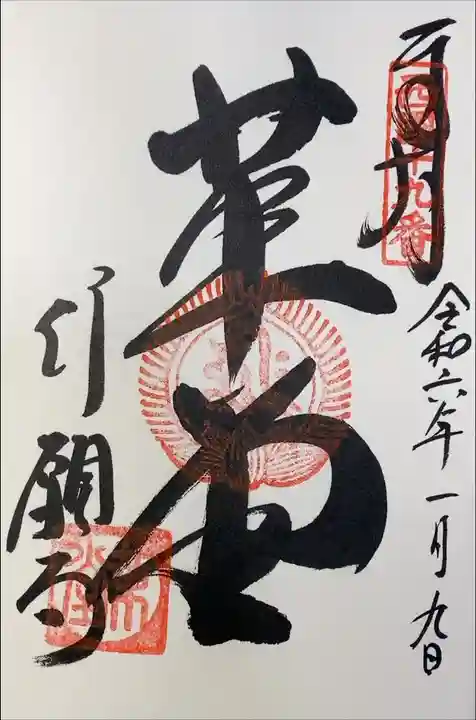 西国十九番
令和六年一月九日
革堂
行願寺